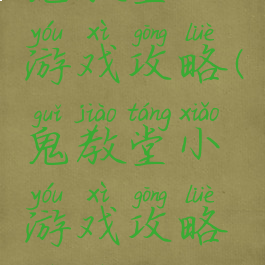 yóu xì gōng lüè
游戏攻略(
guǐ jiào táng xiǎo
鬼教堂小
yóu xì gōng lüè
游戏攻略